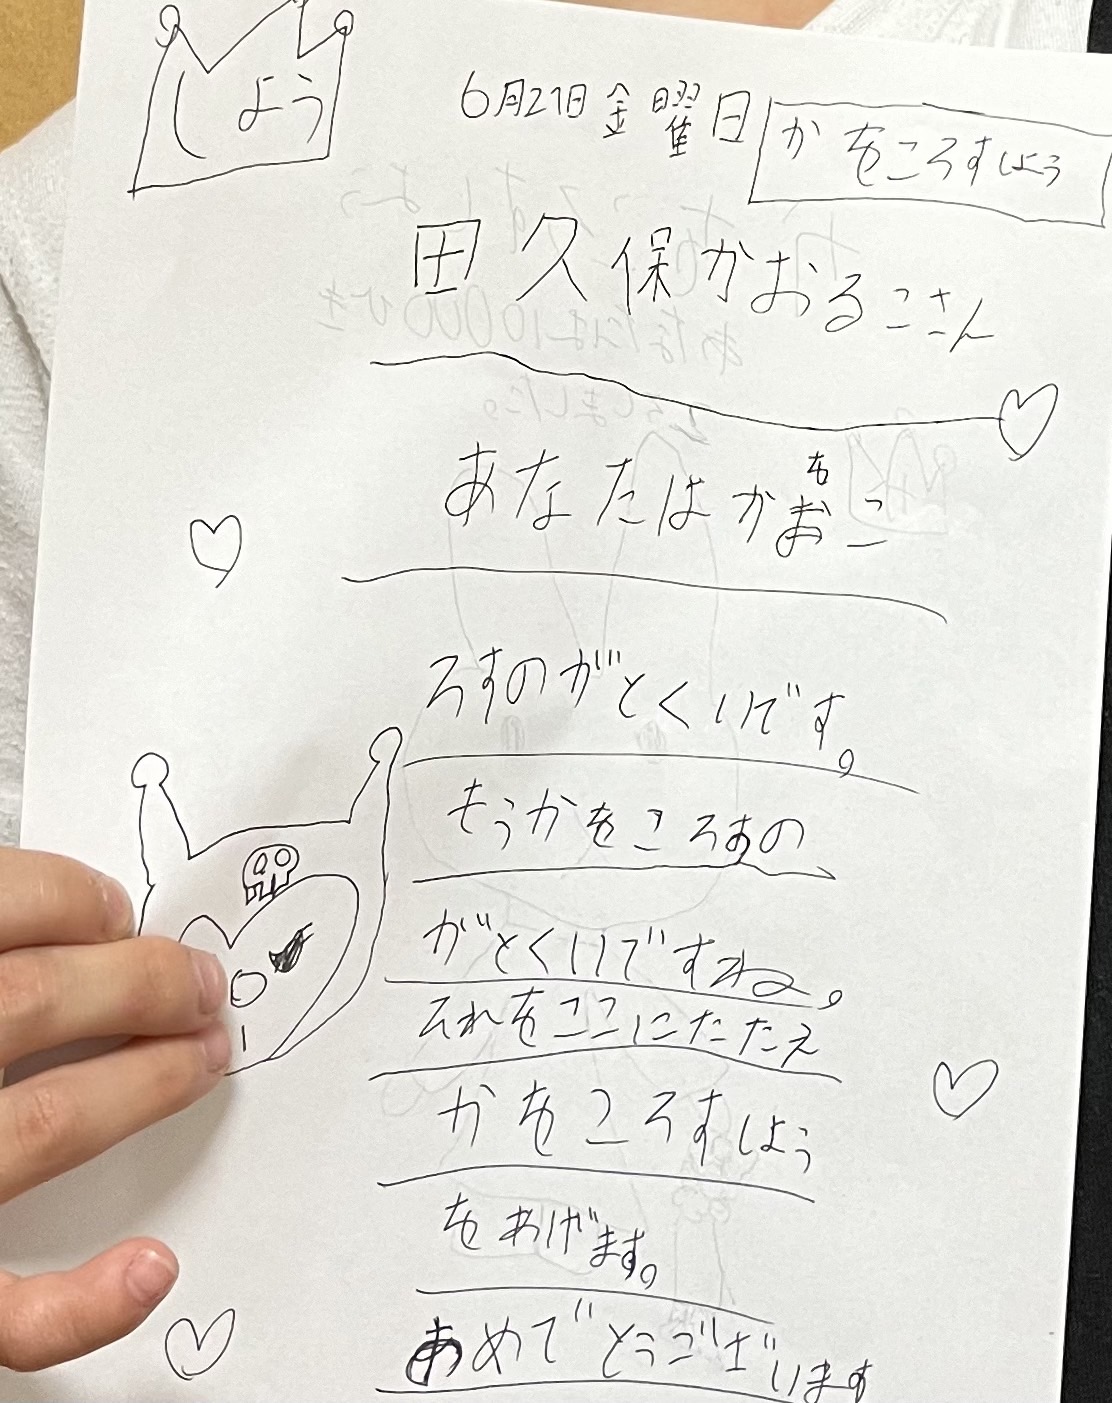 しよう
6月21日金曜日
かをころすしよう
田久保かおるこさん
あなたはかをこ
ろすのがとくいです。
もうかをころすの
がとくいですね。
それをここにたたえ
かをころすしよう
をあげます。
おめでとうございます